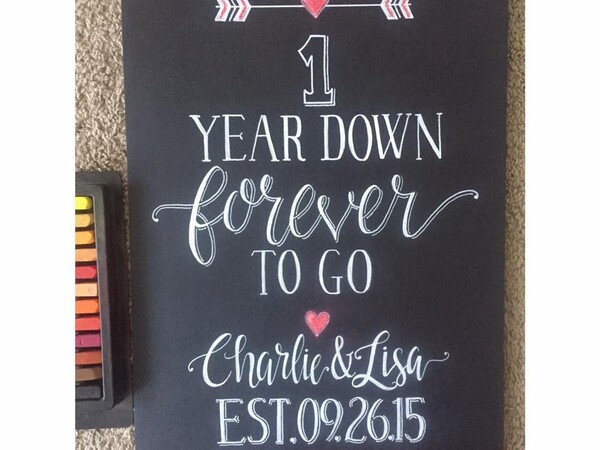 1
YEAR DOWN
forever
TO GO
Charlie & Lisa
EST.09.26.15